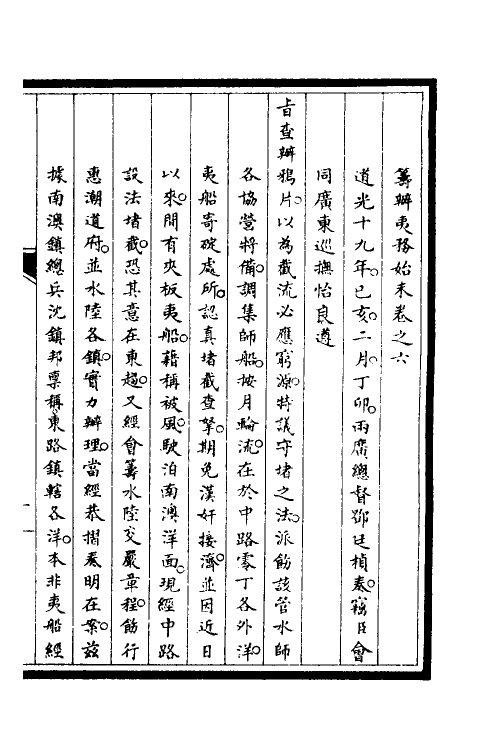 籌辦夷務始末卷之六
道光十九年。己亥。二月。丁卯。兩廣總督鄧廷楨奏。竊臣會
同廣東巡撫怡良遵
旨查辦鴉片。以為截流必應窮源。特議守堵之法。派飭該管水師
各協營將備。調集師船。按月輪流在於中路零丁各外洋。
夷船寄碇處所。認真堵截查拏。期免漢奸接濟。並因近日
以來。間有夾板夷船。藉稱被風。駛泊南澳洋面。現經中路
設法堵截。恐其意在東趨。又經會籌水陸交嚴章程。飭行
惠潮道府。並水陸各鎮。實力辦理。當經恭摺奏明在案。茲
據南澳鎮總兵沈鎮邦稟稱。東路鎮轄各洋。本非夷船經